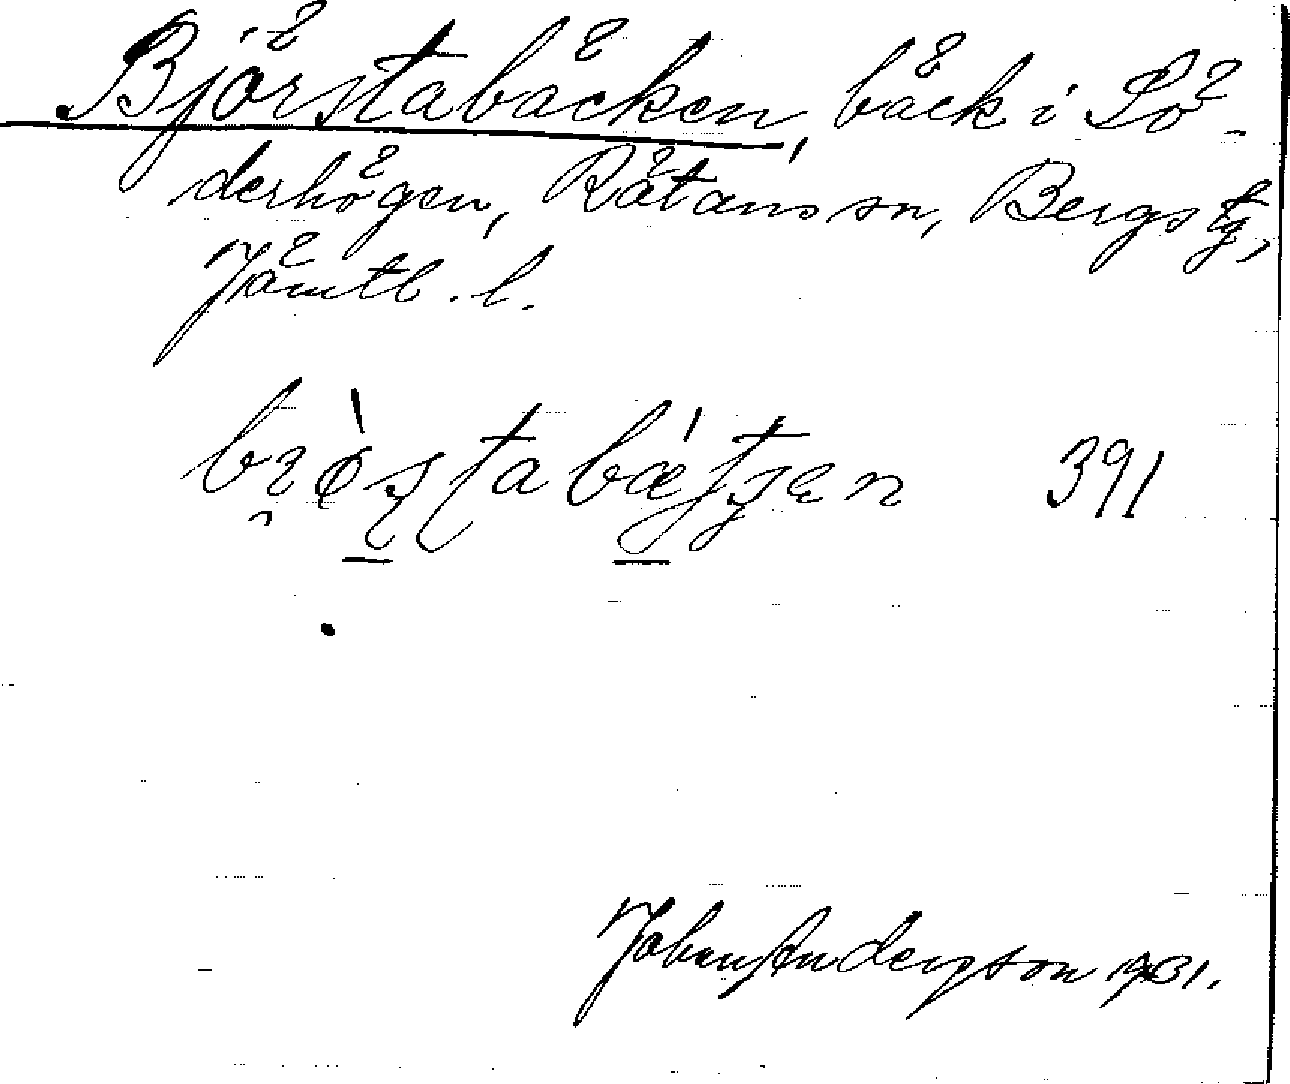 Björstabäcken, bäck i Sö-
derhögen, Rätans sn, Bergs tg,
Jämtl. l.
391
Johan Anderson 1931.